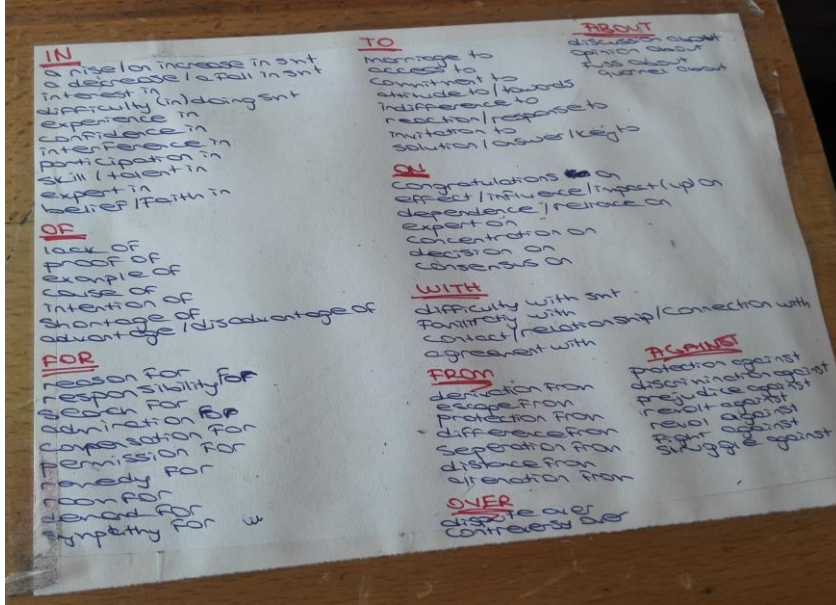 IN
a rise/an increase in smt
a decrease / a fall in smt
interest in
difficulty (in) doing smt
experience in
confidence in
interference in
participation in
skill / talent in
expert in
belief / faith in
OF
lack of
proof of
example of
cause of
intention of
shortage of
advantage / disadvantage of
FOR
reason for
responsibility for
search for
admiration for
compensation for
permission for
remedy for
room for
for
sympathy for
TO
marriage to
access to
commitment to
attitude to / towards
indifference to
reaction/response to
invitation to
solution / answer / key to
ON
congratulations on
effect / influence / impact (up) on
dependence / reliance on
expert on
concentration on
decision on
consensus on
WITH
difficulty with smt
with
contact / relationship / connection with
agreement with
FROM
derivation from
escape from
protection from
difference from
seperation from
distance from
alienation from
OVER
dispute over
over
ABOUT
discussion about
opinion about
fuss about
quarrel about
AGAINST
protection against
discrimination against
prejudice against
revolt against
against
fight against
struggle against